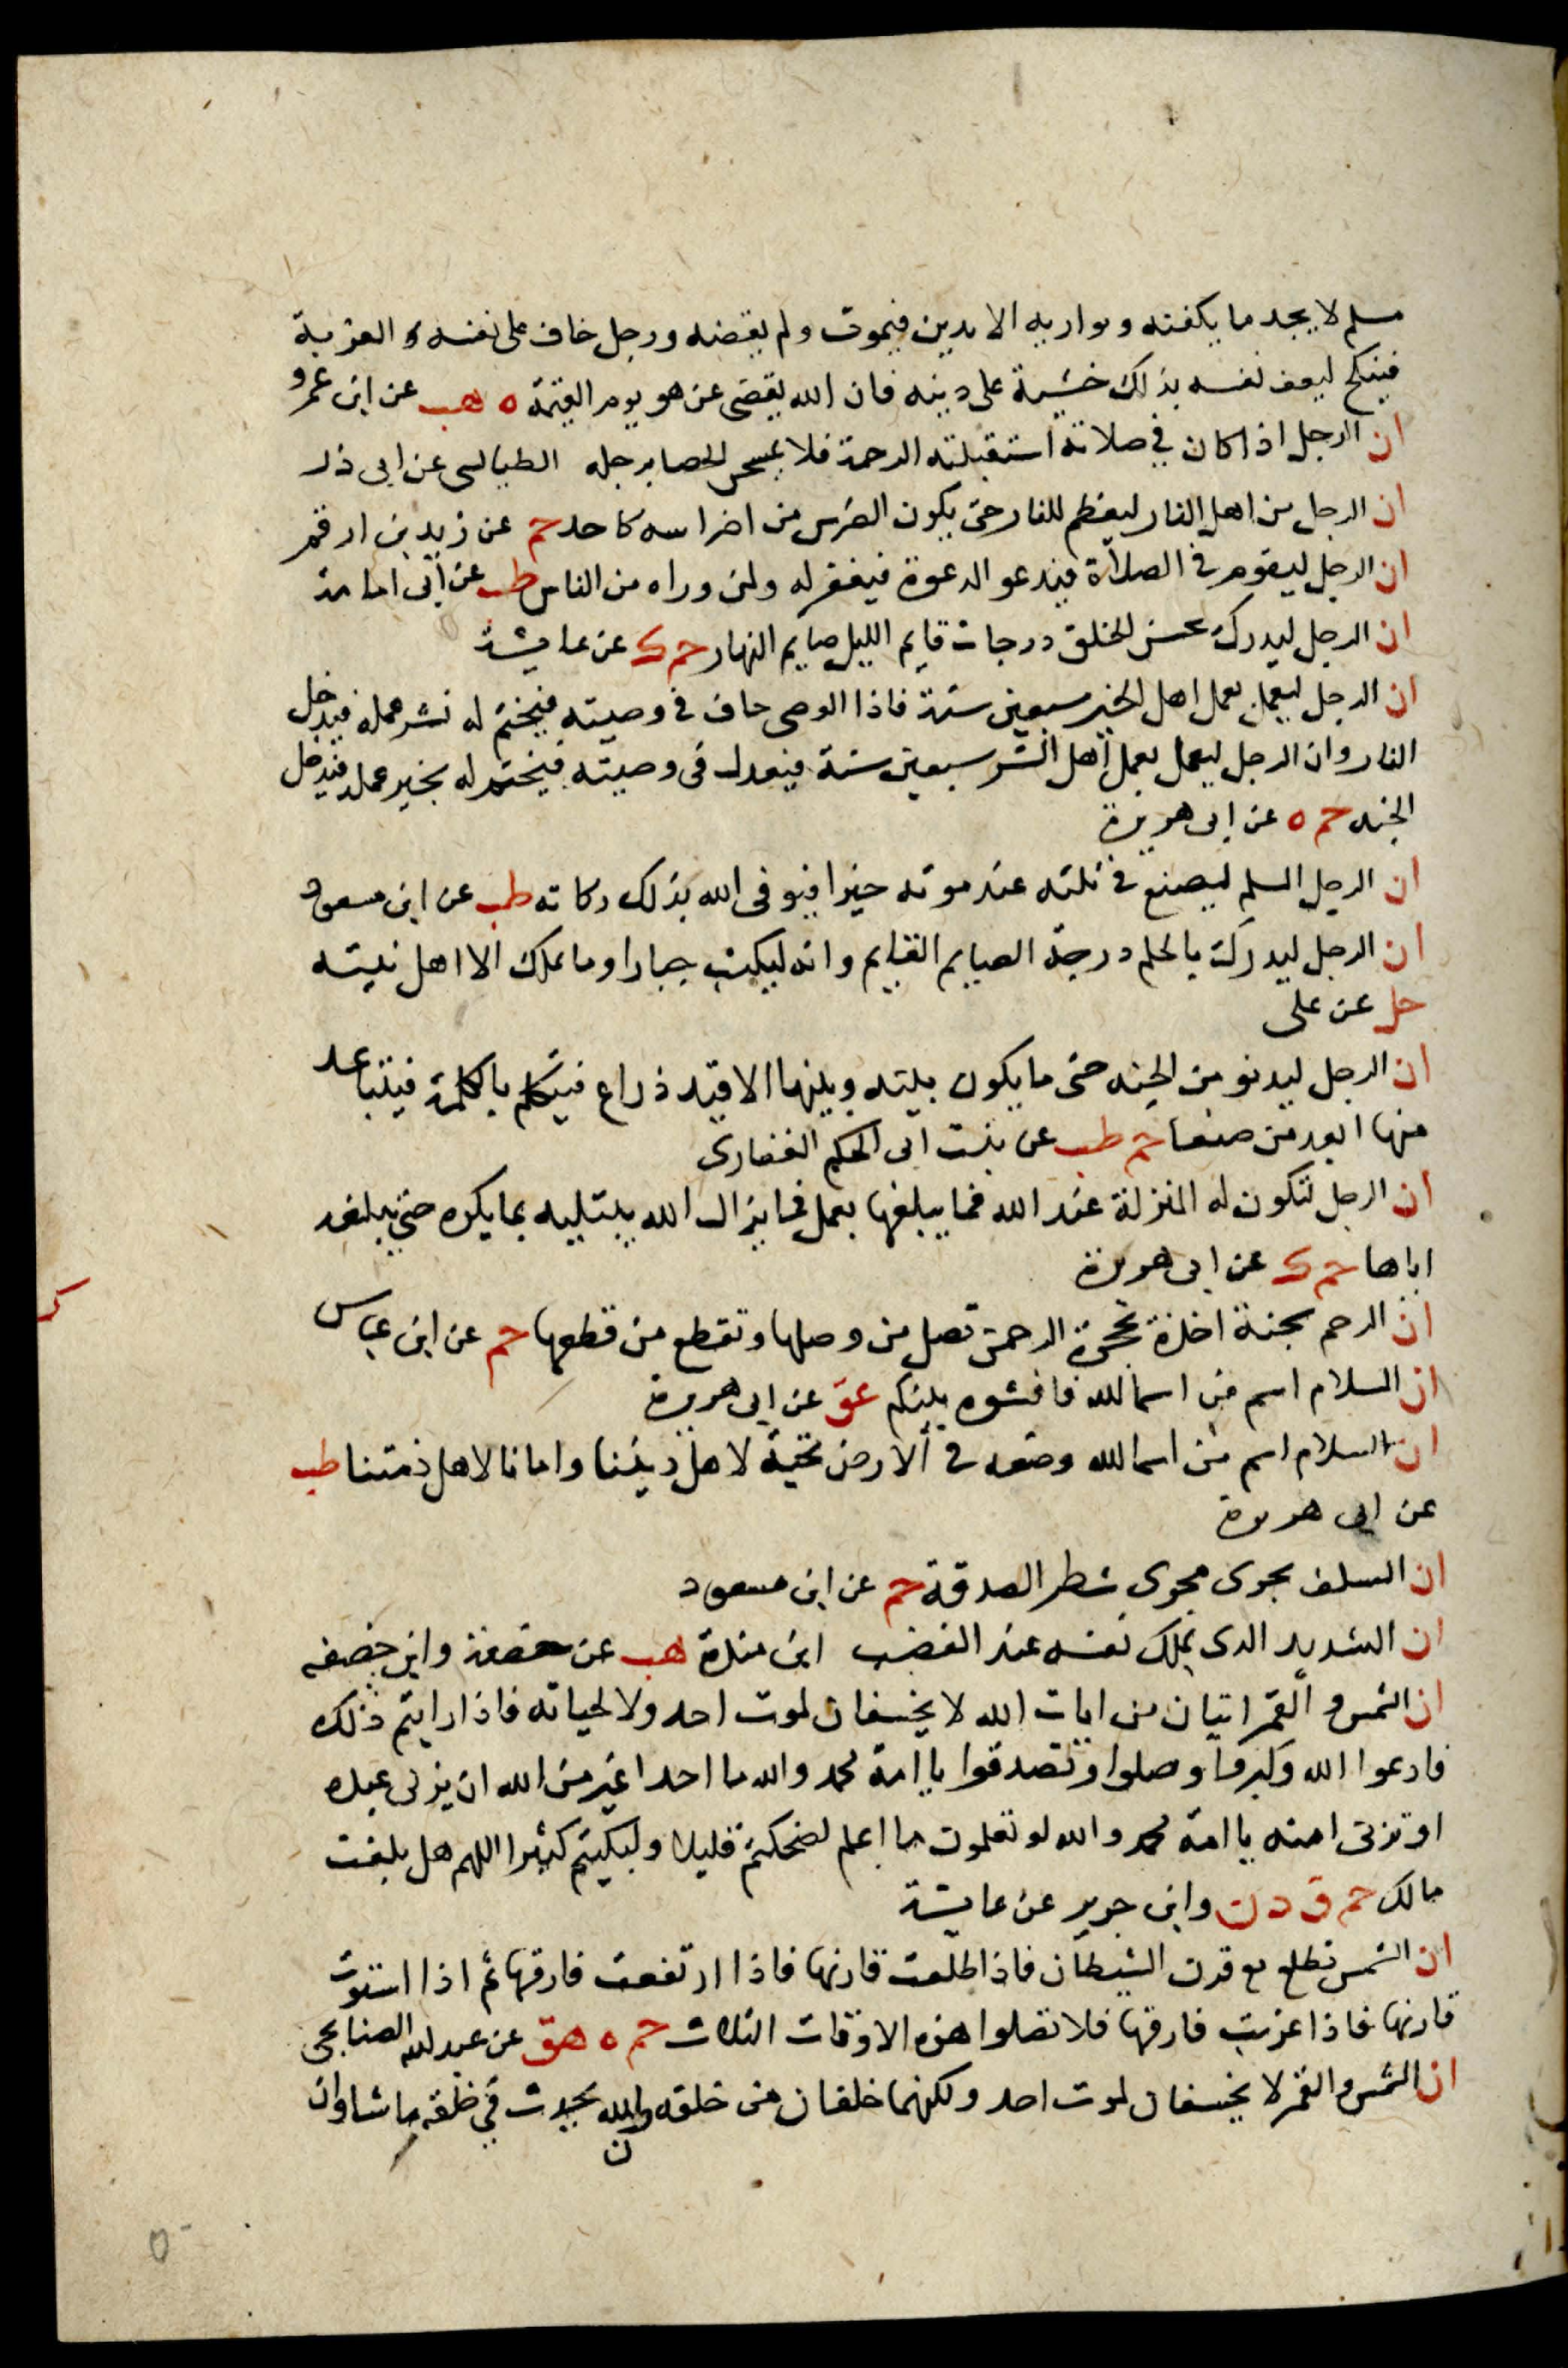 مسلم لا يجد ما يكفنه ويواريه الا بدين فيموت ولم يقضه ورجل خاف على نفسه العزبة
فينكح ليعف نفسه بذلك خشية على دينه فان الله يقضى عن هو يوم القيمة ه هب عن ابن عمرو
ان الرجل اذا كان في صلاته استقبلته الرحمة فلا يمسح الحصا برجله الطيالسى عن ابى ذر
ان الرجل من اهل النار ليعظم للنار حتى يكون الضرس من اضراسه كاحد حم عن زيد بن ارقم
ان الرجل ليقوم في الصلاة فيدعو الدعوة فيغفر له ولمن وراه من الناس طب عن ابى امامة
ان الرجل ليدرك بحسن الخلق درجات قايم الليل صايم النهار حم ك عن عايشة
ان الرجل ليعمل بعمل اهل الخير سبعين سنة فاذا اوصى حاف في وصيته فيختم له بشر عمله فيدخل
النار وان الرجل ليعمل بعمل اهل الشر سبعين سنة فيعدل في وصيته فيختم له بخير عمله فيدخل
الجنه حم ه عن ابى هريرة
ان الرجل المسلم ليصنع في ثلثه عند موته خيرا فيوفى الله بذلك زكاته طب عن ابن مسعود
ان الرجل ليدرك بالحلم درجة الصايم القايم وانه ليكتب جبارا وما يملك الا اهل بيته
حل عن على
ان الرجل ليدنو من الجنه حتى ما يكون بينه وبينها الا قيد ذراع فيتكلم بالكلمة فيتباعد
منها ابعد من صنعا حم طب عن بنت ابى الحكم الغفارى
ان الرجل لتكون له المنزلة عند الله فما يبلغها بعمل فما يزال الله يبتليه بما يكره حتى يبلغه
اياها حم ك عن ابى هريرة
ان الرحم شجنة اخذة بحجزة الرحمن تصل من وصلها وتقطع من قطعها حم عن ابن عباس
ان السلام اسم من اسما الله فافشوه بينكم عق عن ابى هريرة
ان السلام اسم من اسما الله وضعه في الارض تحية لاهل ديننا وامانا لاهل ذمتنا طب
عن ابى هريرة
ان السلف يجرى مجرى شطر الصدقة حم عن ابن مسعود
ان الشديد الذى يملك نفسه عند الغضب ابن مندة هب عن حفصة وابن خصفه
ان الشمس والقمر ايتان من ايات الله لا يخسفان لموت احد ولا لحياته فاذا رايتم ذلك
فادعوا الله وكبروا وصلوا وتصدقوا يا امة محمد والله ما احد اغير من الله ان يزنى عبده
او تزنى امته يا امة محمد والله لو تعلمون ما اعلم لضحكتم قليلا ولبكيتم كثيرا اللهم هل بلغت
مالك حم ق د ن وابن جرير عن عايشة
ان الشمس تطلع مع قرن الشيطان فاذا طلعت قارنها فاذا ارتفعت فارقها ثم اذا استوت
قارنها فاذا غربت فارقها فلا تصلوا هذه الاوقات الثلاث حم ه هق عن عبد الله الصنابحى
ان الشمس والقمر لا يخسفان لموت احد ولكنهما خلقان من خلقه والله يحدث في خلقه ما شا وان